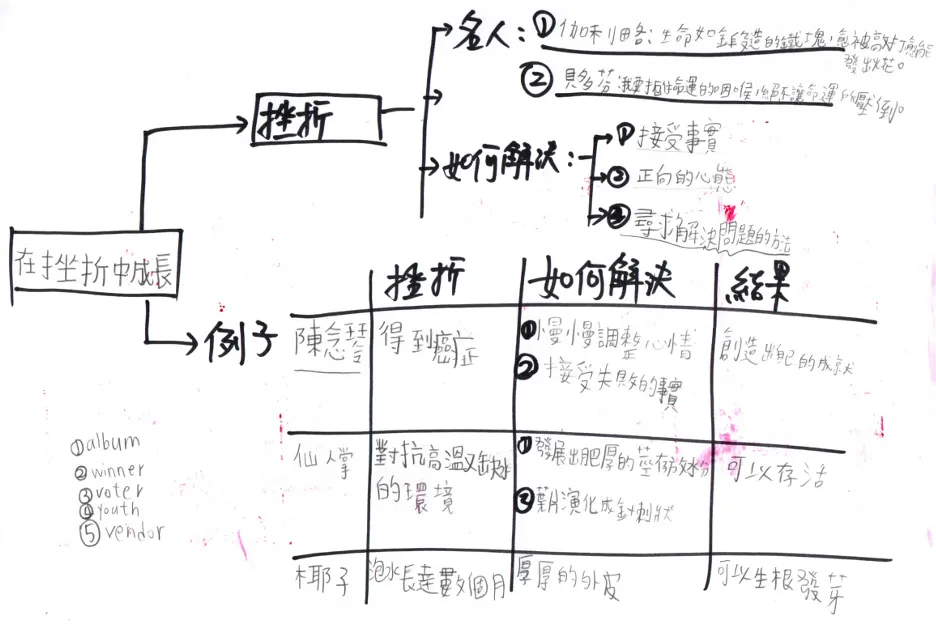 名人：①伽利略：生命如鍛造的鐵塊，愈被敲打愈能
發出火花。
②貝多芬：我要扼住命運的咽喉，絕不讓命運所壓倒。
挫折
如何解決：①接受事實
②正向的心態
③尋求解決問題的方法
在挫折中成長
例子
挫折 如何解決 結果
陳念琴 得到癌症 ①慢慢調整心情 創造出自己的成就
②接受失敗的事實
仙人掌 對抗高溫又缺水 ①發展出肥厚的莖存放水分 可以存活
的環境 ②葉演化成針刺狀
椰子 泡水長達數個月 厚厚的外皮 可以生根發芽
①album
②winner
③voter
④youth
⑤vendor